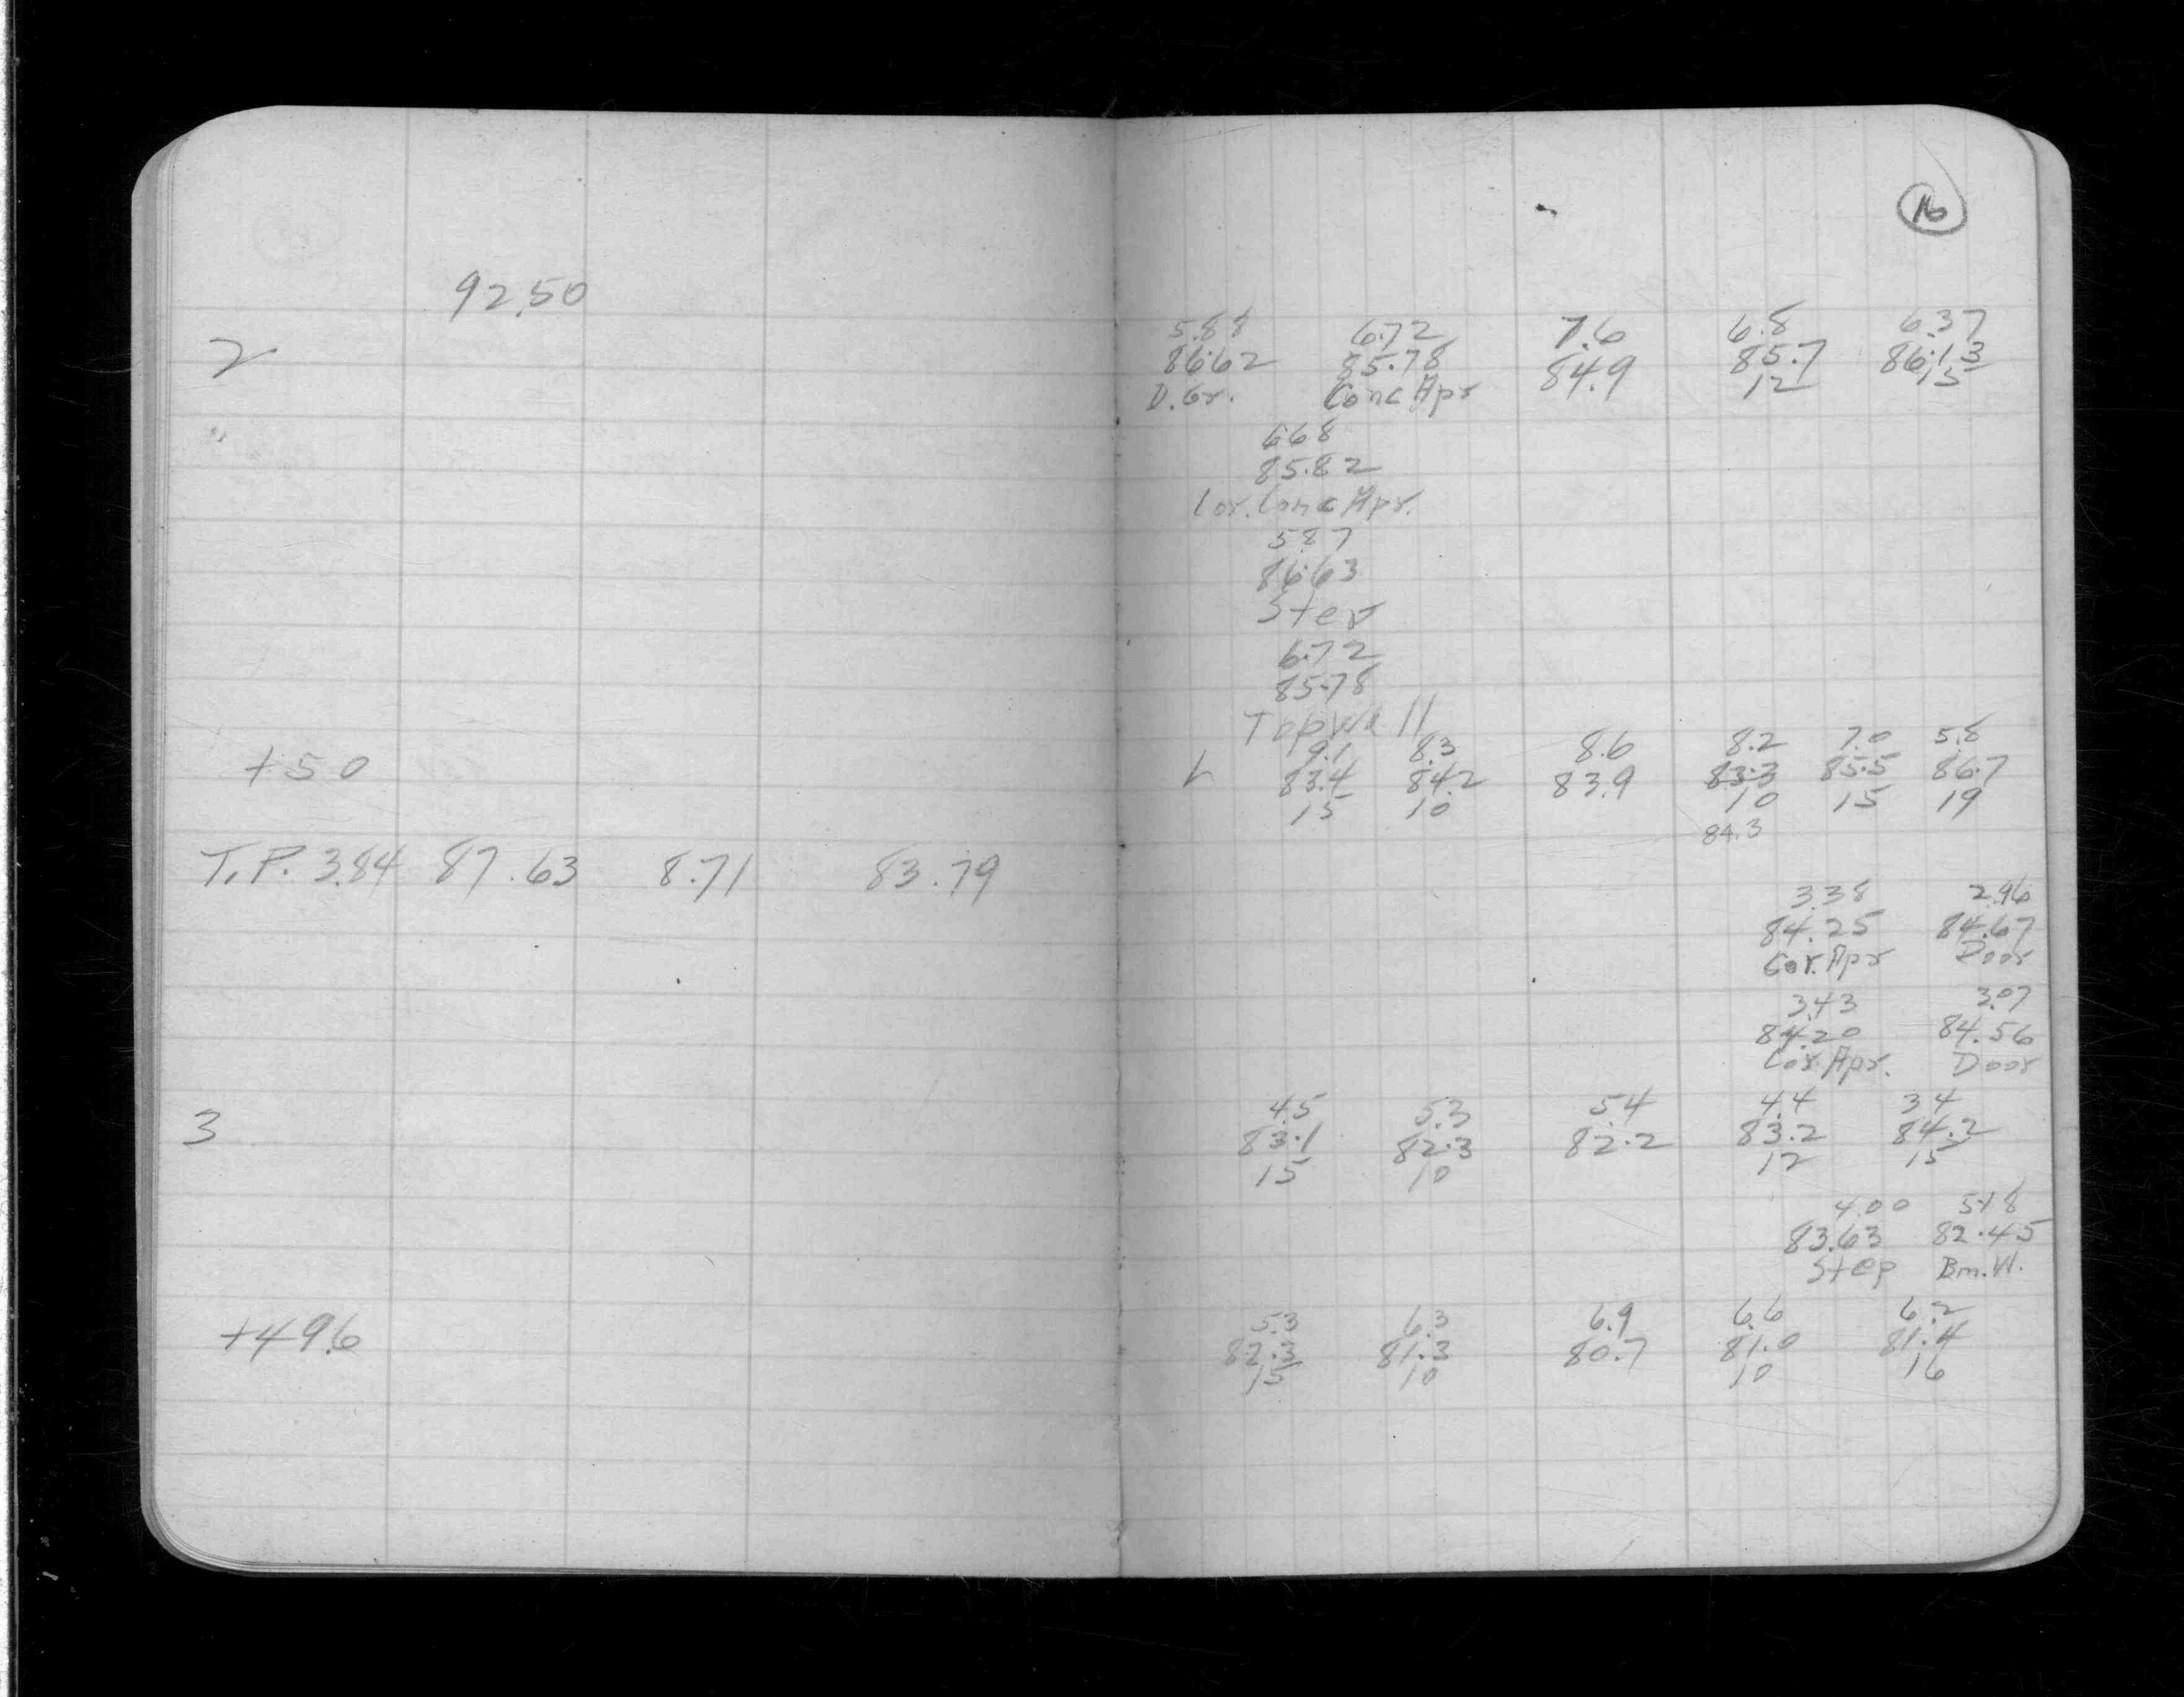 16
92.50
5.88 6.72 7.6 6.8 6.37
2 86.62 85.78 84.9 85.7 86.13
D.Gr. Conc Apr 12 15
6.68
85.82
Cor. Conc Apr.
5.87
86.63
Step
6.72
85.78
Top Wall
9.1 8.3 8.6 8.2 7.0 5.8
+50 83.4 84.2 83.9 83.3 85.5 86.7
15 10 10 15 19
84.3
T.P. 3.84 87.63 8.71 83.79
3.38 2.96
84.25 84.67
Cor. Apr Door
3.43 3.07
84.20 84.56
Cor. Apr. Door
4.5 5.3 5.4 4.4 3.4
3 83.1 82.3 82.2 83.2 84.2
15 10 12 15
4.00 5.18
83.63 82.45
Step Bm. W.
5.3 6.3 6.9 6.6 6.2
+49.6 82.3 81.3 80.7 81.0 81.4
15 10 10 16